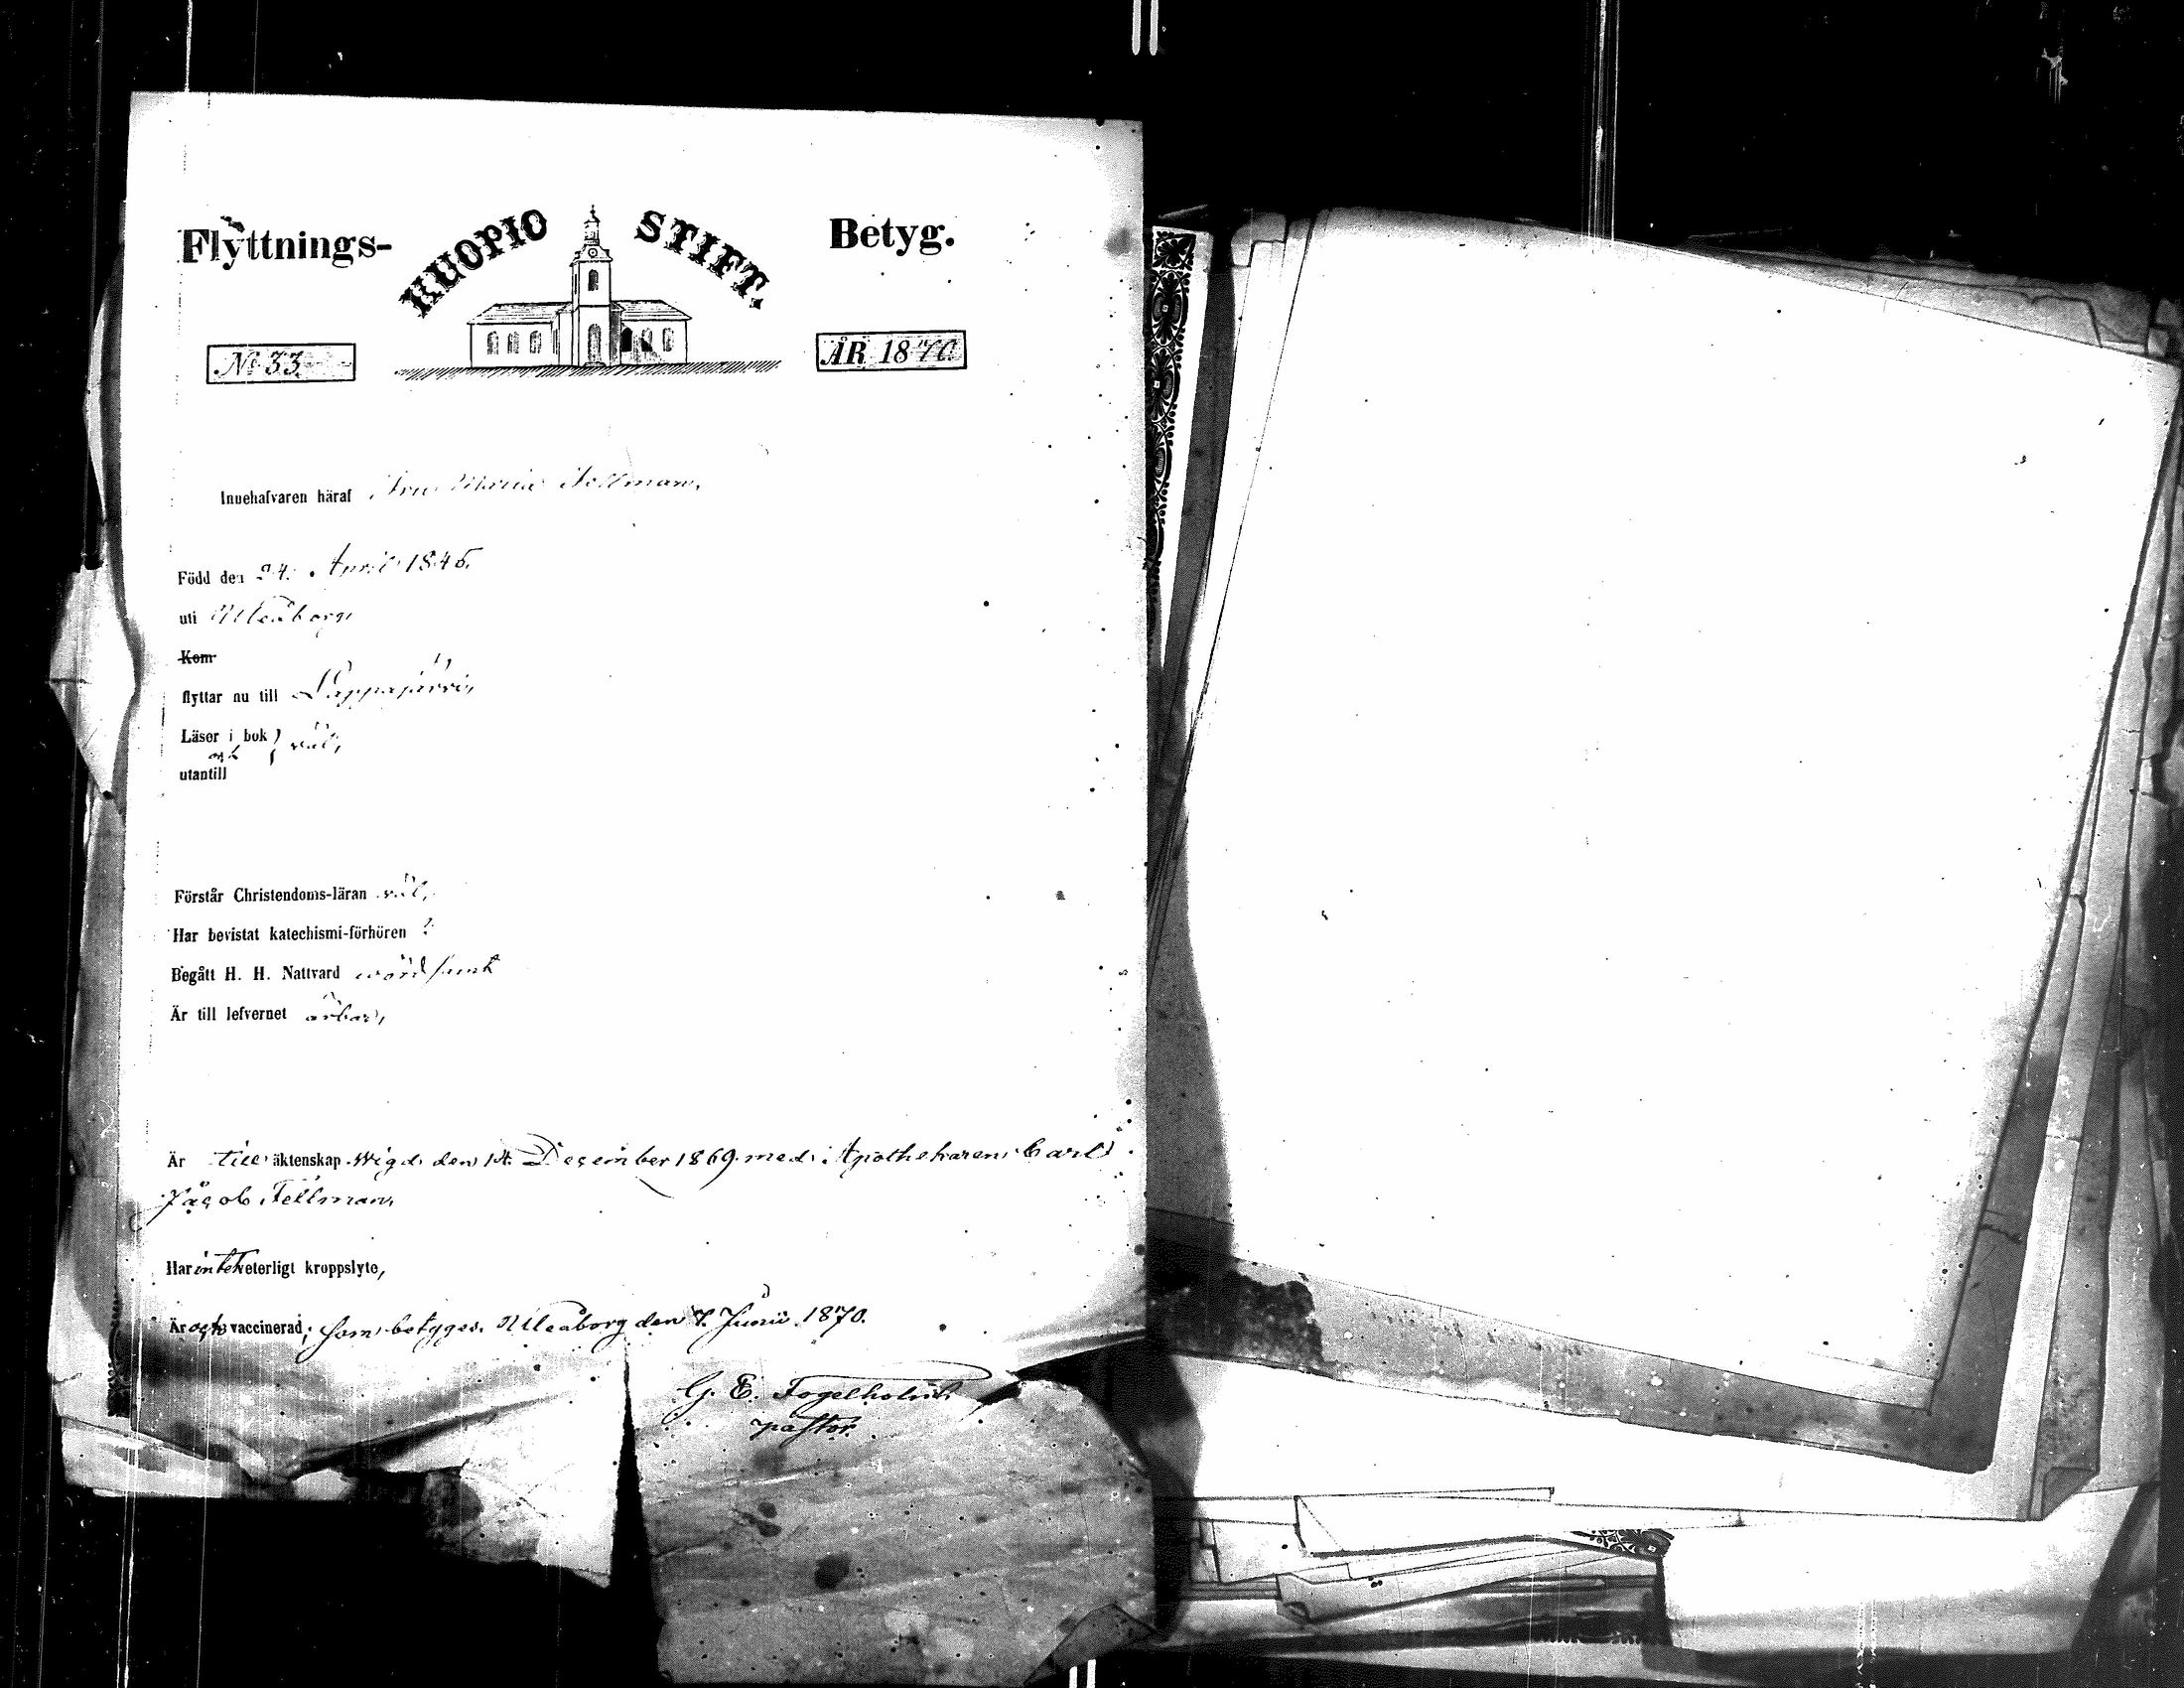 Flyttnings- KUOPIO STIFT. Betyg.
No 33. ÅR 1870.
Innehafvaren häraf Fru Maria Fellman,
Född den 24. April 1845.
uti Uleåborg,
Kom
flyttar nu till Lappajärvi,
Läser i bok
och } väl,
utantill
Förstår Christendoms-läran väl,
Har bevistat katechismi-förhören ?
Begått H. H. Nattvard wördsamt
Är till lefvernet ärbar,
Är till äktenskap wigd den 14. December 1869 med Apothekaren Carl
Jacob Fellman,
Har intet veterligt kroppslyte,
Är ock vaccinerad; som betygges. Uleåborg den 7. Junii 1870.
G. E. Fogelholm
pastor.